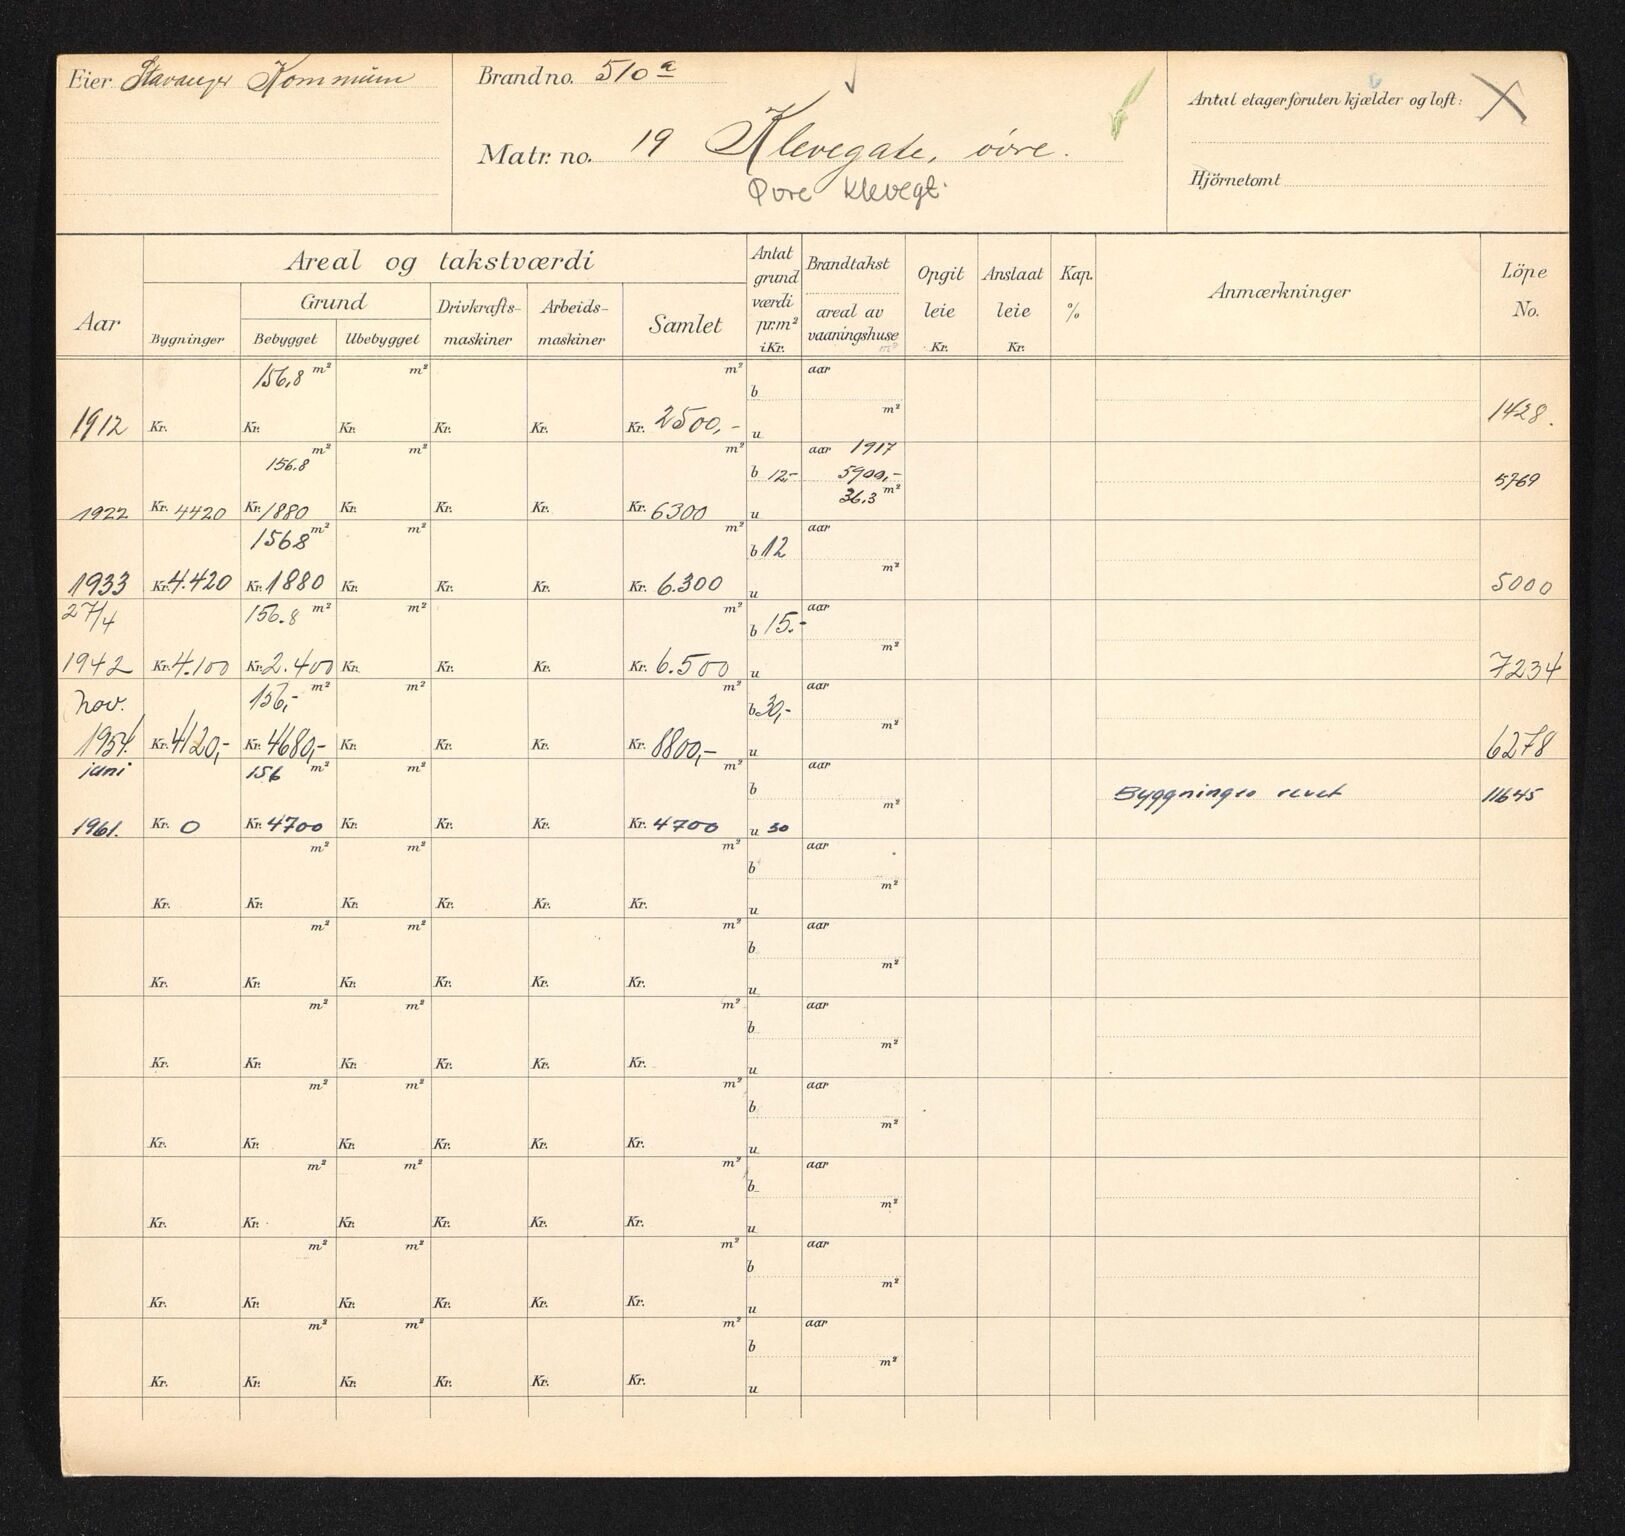 Eier Stavanger Kommune
Brandno. 510 a
Matr. no. 19 Klevegate, övre.
Øvre Klevegt.
Antal etager foruten kjælder og loft:
Hjörnetomt
Aar
Areal og takstværdi
Bygninger
Grund
Bebygget
Ubebygget
Drivkrafts-maskiner
Arbeids-maskiner
Samlet
Antat grund værdi pr.m² i Kr.
Brandtakst
areal av vaaningshuse m²
Opgit leie Kr.
Anslaat leie Kr.
Kap. %
Anmærkninger
Löpe No.
156,8 m² m² m² b aar
m²
1912 Kr. Kr. Kr. Kr. Kr. Kr. 2500,- u 1428.
156.8 m² m² m² b 12,- aar 1917
5900,-
36,3 m² 5769
1922 Kr. 4420 Kr. 1880 Kr. Kr. Kr. Kr. 6300 u
156.8 m² m² m² b 12 aar
m²
1933 Kr. 4.420 Kr. 1880 Kr. Kr. Kr. Kr. 6.300 u 5000
27/4 156.8 m² m² m² b 15.- aar
m²
1942 Kr. 4.100 Kr. 2.400 Kr. Kr. Kr. Kr. 6.500 u 7234
nov. 156,- m² m² m² b 30,- aar
m²
1954. Kr. 4120,- Kr. 4680,- Kr. Kr. Kr. Kr. 8800,- u 6278
juni 156 m² m² m² b aar
m² Byggningen revet 11645
1961. Kr. 0 Kr. 4700 Kr. Kr. Kr. Kr. 4700 u 30
m² m² m² b aar
m²
Kr. Kr. Kr. Kr. Kr. Kr. u
m² m² m² b aar
m²
Kr. Kr. Kr. Kr. Kr. Kr. u
m² m² m² b aar
m²
Kr. Kr. Kr. Kr. Kr. Kr. u
m² m² m² b aar
m²
Kr. Kr. Kr. Kr. Kr. Kr. u
m² m² m² b aar
m²
Kr. Kr. Kr. Kr. Kr. Kr. u
m² m² m² b aar
m²
Kr. Kr. Kr. Kr. Kr. Kr. u
m² m² m² b aar
m²
Kr. Kr. Kr. Kr. Kr. Kr. u